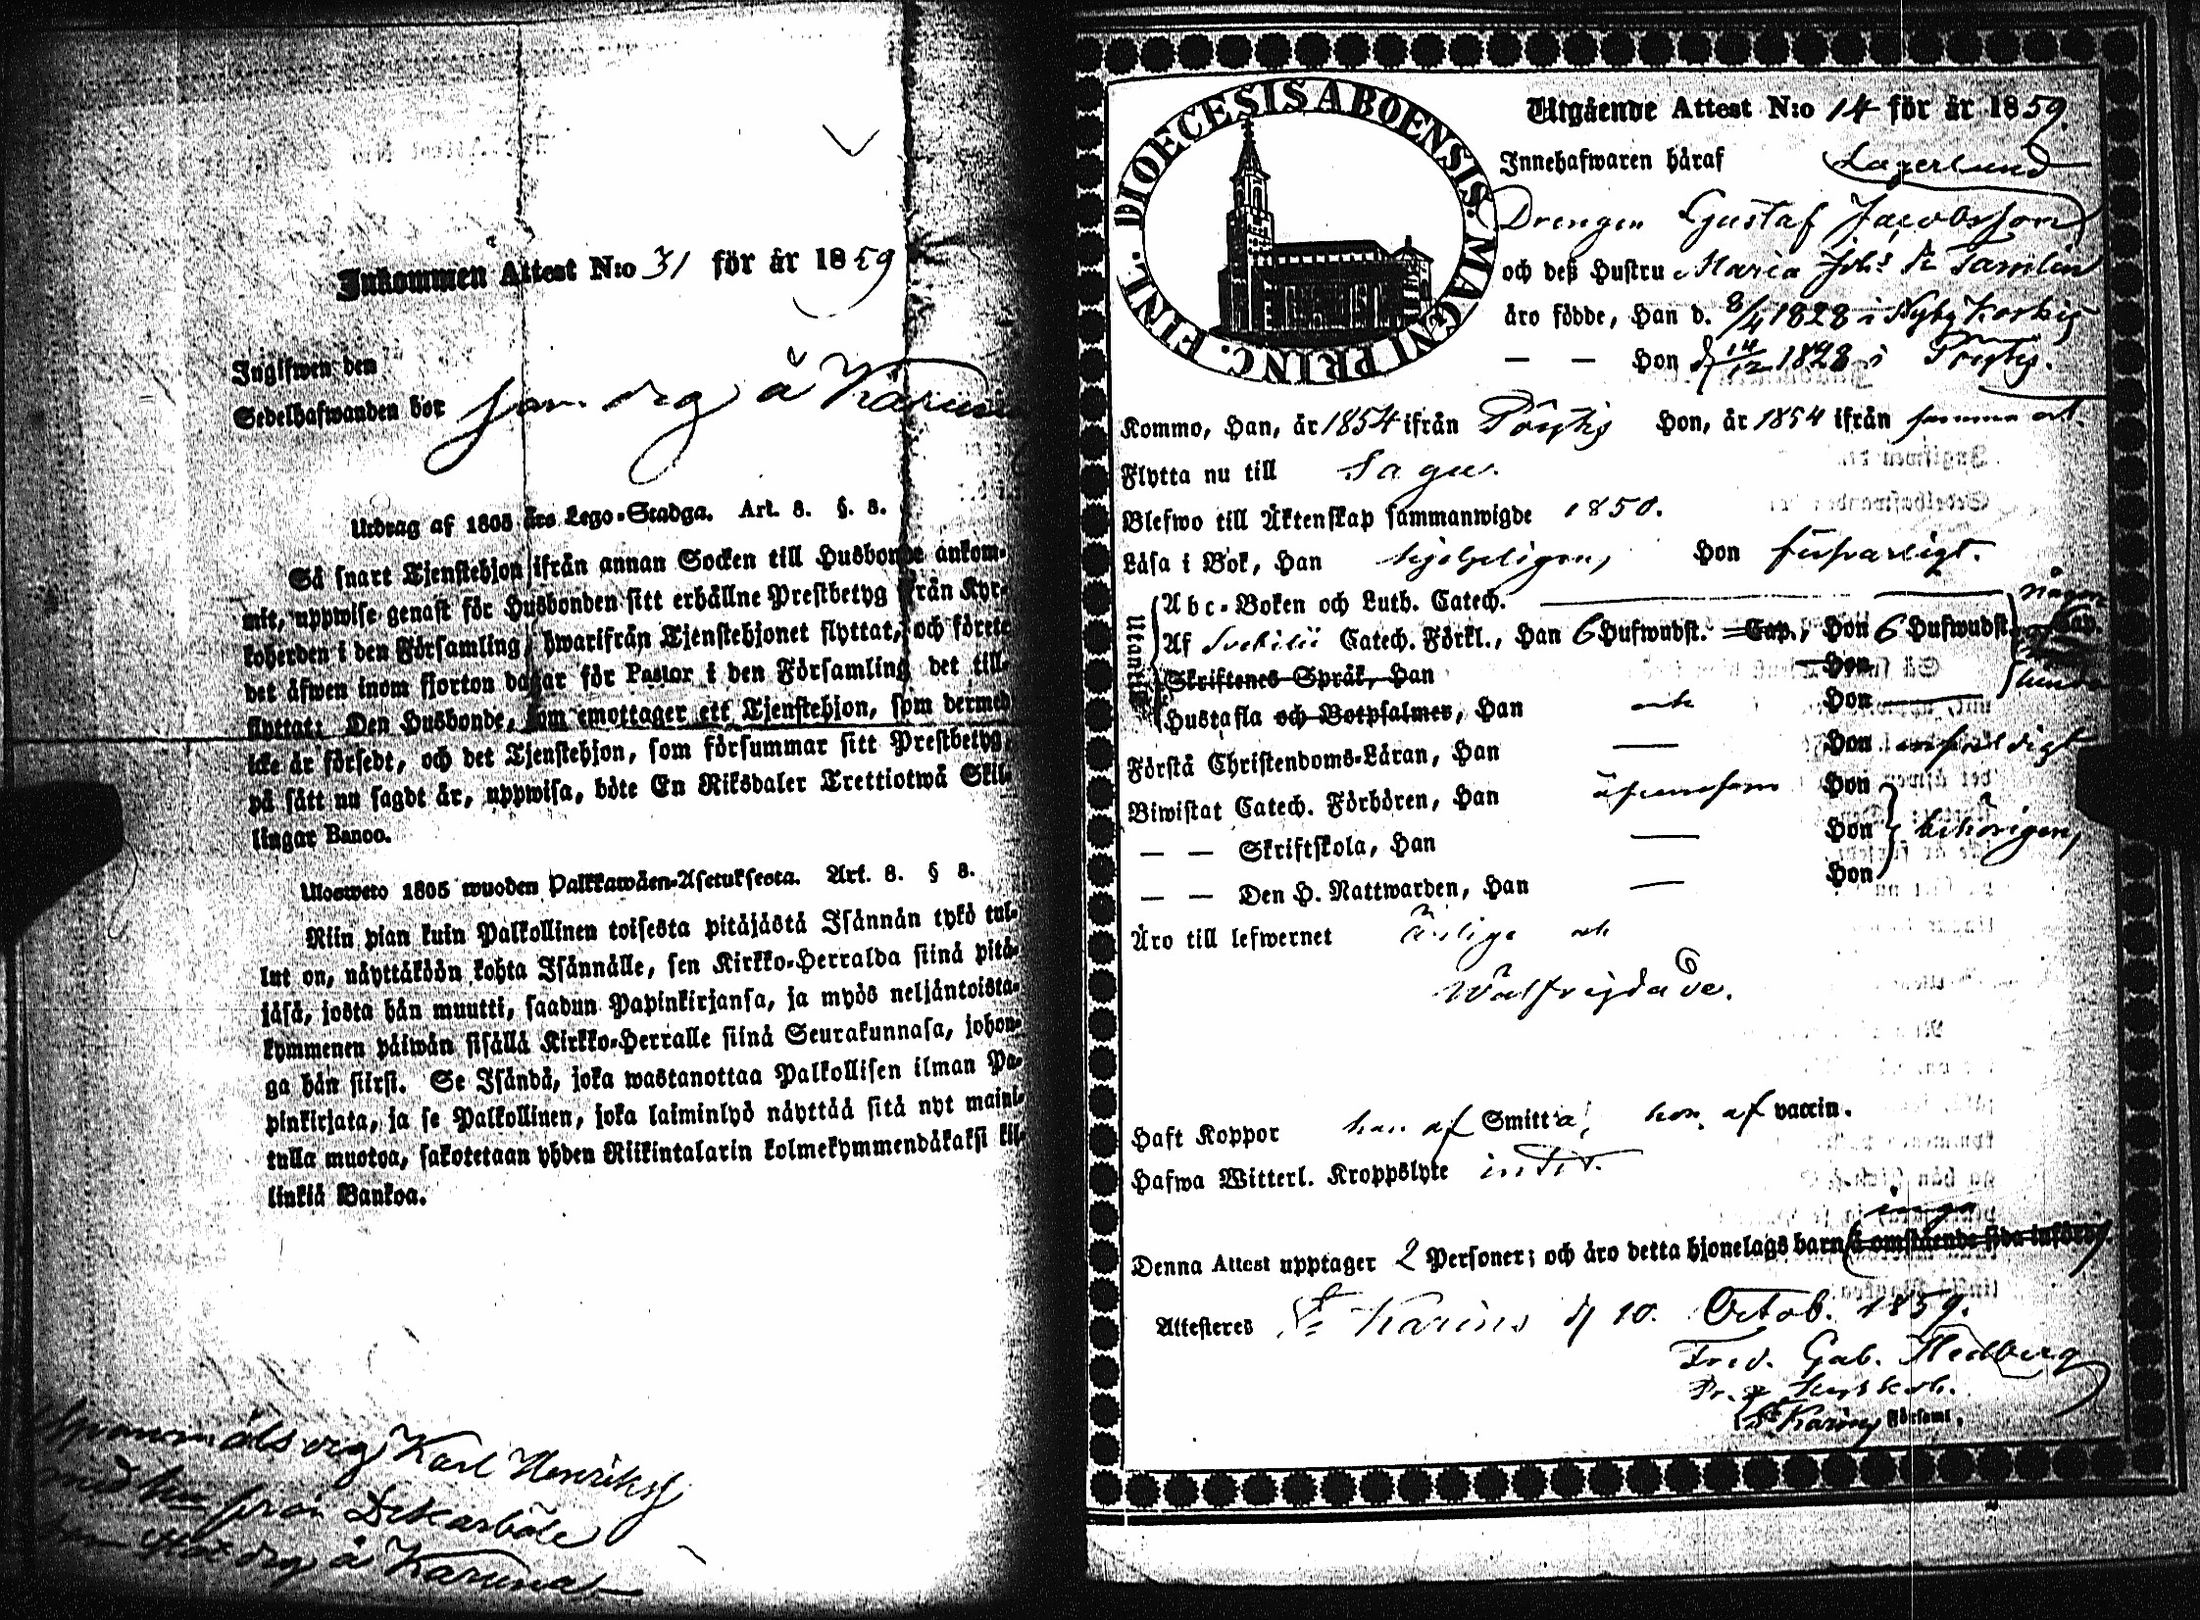 Inkommen Attest N:o 31 för år 1859
Ingifwen den
Sedelhafwanden bor som drg å Karuna
Utdrag af 1805 års Lego-Stadga. Art. 8. §. 8.
Så snart Tjenstehjon ifrån annan Socken till Husbonde ankom-
mit, uppwise genast för Husbonden sitt erhållne Prestbetyg ifrån Kyr-
koherden i den Församling, hwarifrån Tjenstehjonet flyttat, och förete
det äfwen inom fjorton dagar för Pastor i den Församling det till-
flyttat: Den Husbonde, som emottager ett Tjenstehjon, som dermed
icke är försedt, och det Tjenstehjon, som försummar sitt Prestbetyg,
på sätt nu sagdt är, uppwisa, böte En Riksdaler Trettiotwå Skil-
lingar Banco.
Ulosweto 1805 wuoden Palkkawäen-Asetuksesta. Art. 8. § 8.
Niin pian kuin Palkollinen toisesta pitäjästä Isännän tykö tul-
lut on, näyttäköön kohta Isännälle, sen Kirkko-Herralda siinä pitä-
jäsä, josta hän muutti, saadun Papinkirjansa, ja myös neljäntoista-
kymmenen päiwän sisällä Kirkko-Herralle siinä Seurakunnasa, johon-
ga hän siirsi. Se Isändä, joka wastanottaa Palkollisen ilman Pa-
pinkirjata, ja se Palkollinen, joka laiminlyö näyttää sitä nyt maini-
tulla muotoa, sakotetaan yhden Riikintalarin kolmekymmendäkaksi kil-
linkiä Bankoa.
Karl Henriksf
från Dekarböle
drg å Karuna
DIOECESIS ABOENSIS. MAGNI PRINC. FINL.
Utgående Attest N:o 14 för år 1859.
Innehafwaren häraf Lagerlund
Drengen Gustaf Jacobsson
och deß Hustru Maria Joh:s Tamlin
äro födde, Han d. 8/4 1828 i Nyby
— — Hon d 14/12 1828 i
Kommo, Han, år 1854 ifrån Hon, år 1854 ifrån samma ort.
Flytta nu till Sagu.
Blefwo till Äktenskap sammanwigde 1850.
Läsa i Bok, Han hjelpeligen, Hon försvarligt.
Utantill
Abc-Boken och Luth. Catech.
Af Svebilii Catech. Förkl., Han 6 Hufwudst. Cap., Hon 6 Hufwudst. Cap.
Skriftenes Språk, Han Hon
Hustafla och Botpsalmer, Han och Hon
Förstå Christendoms-Läran, Han — Hon enfaldigt
Biwistat Catech. Förhören, Han äfvensom Hon
— — Skriftskola, Han — Hon behörigen,
— — Den H. Nattwarden, Han — Hon
Äro till lefwernet ärlige och
Wälfrejdade.
Haft Koppor han af Smitta, hon af vaccin.
Hafwa Witterl. Kroppslyte intet.
inga
Denna Attest upptager 2 Personer; och äro detta hjonelags barn å omstående sida införde
Attesteres S:t Karins d 10. Octob. 1859.
Fred. Gab. Hedberg
S:t Karins Församl.